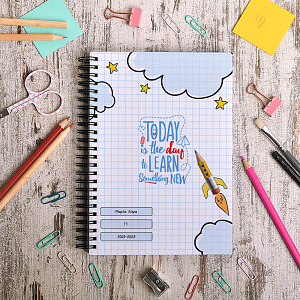 TODAY
is the day
to LEARN
Something NEW
Γ1
2021-2022